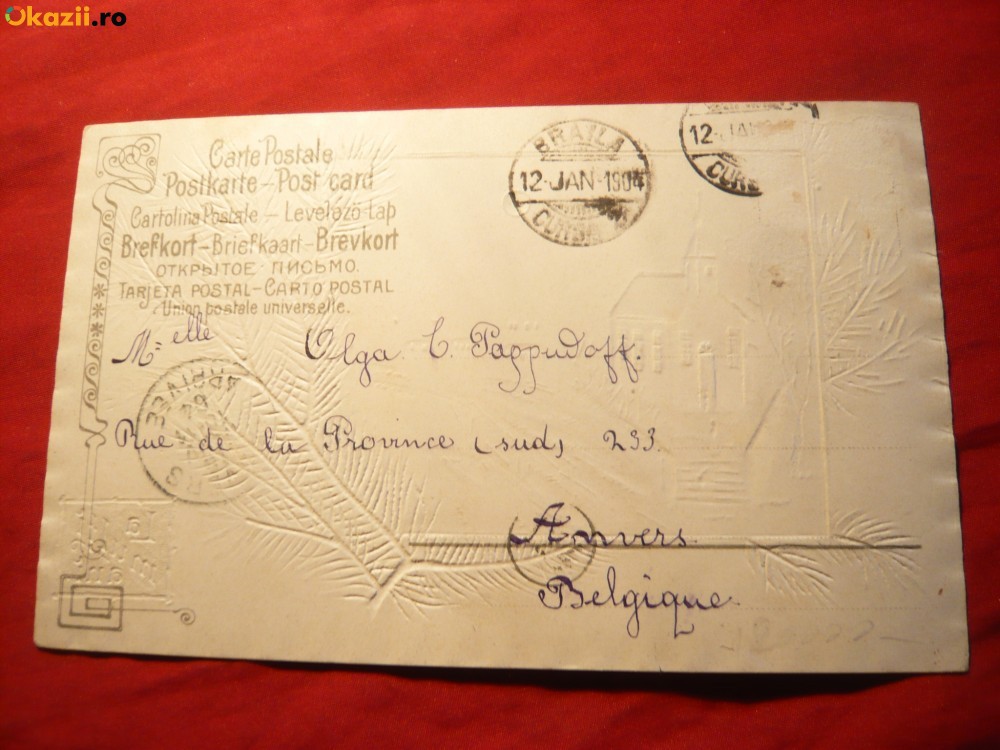 Okazii.ro
Carte Postale
Postkarte - Post card
Cartolina Postale - Levelező-Lap
Brefkort - Briefkaart - Brevkort
ОТКРЫТОЕ ПИСЬМО.
TARJETA POSTAL - CARTO POSTAL
Union postale universelle.
BRAILA
12-JAN-1904
12-JAN
M=elle Olga C. Pappudoff.
ARRIVEE
Rue de la Province (sud) 233.
Anvers
Belgique.